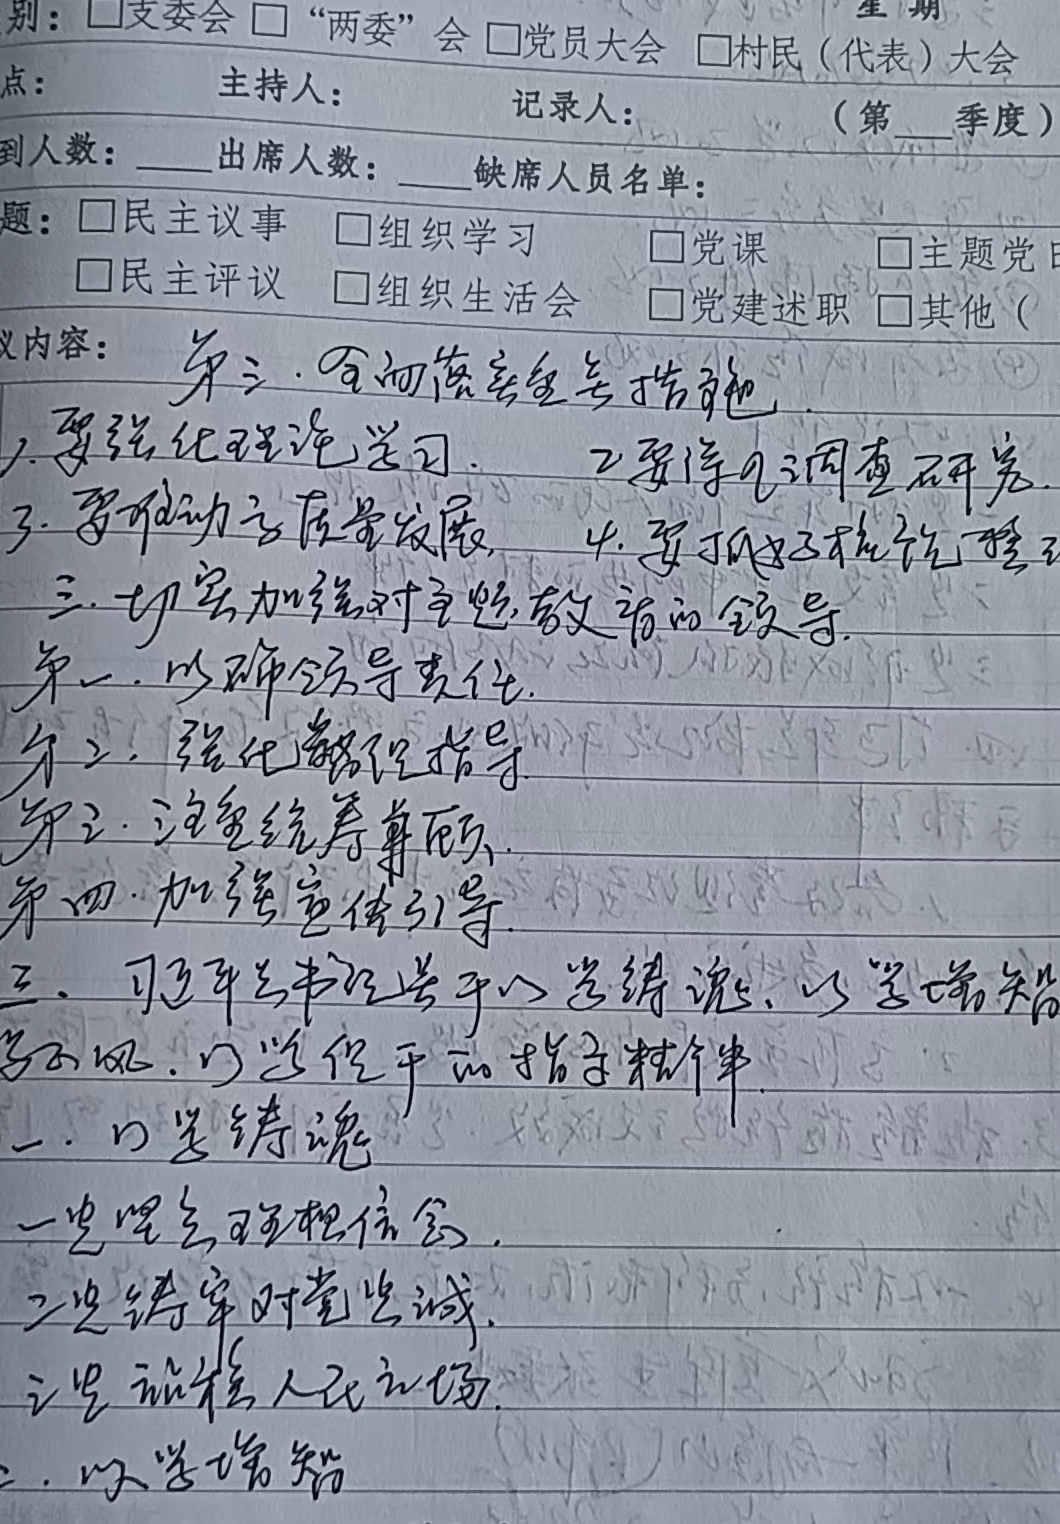 别：□支委会 □ “两委”会 □党员大会 □村民（代表）大会 星期
点： 主持人： 记录人： （第___季度）
到人数：____出席人数：____缺席人员名单：
题：□民主议事 □组织学习 □党课 □主题党日
□民主评议 □组织生活会 □党建述职 □其他（
议内容：
第三.全面落实重点措施.
1.要强化理论学习. 2.要深入调查研究.
3.要推动高质量发展. 4.要抓好检视整改
三.切实加强对主题教育的领导.
第一.明确领导责任.
第二.强化督促指导.
第三.注重统筹兼顾.
第四.加强宣传引导.
三、习近平总书记关于以学铸魂、以学增智
学正风.以学促干的指示精神.
一.以学铸魂
一是坚定理想信念.
二是铸牢对党忠诚.
三是站稳人民立场.
二.以学增智